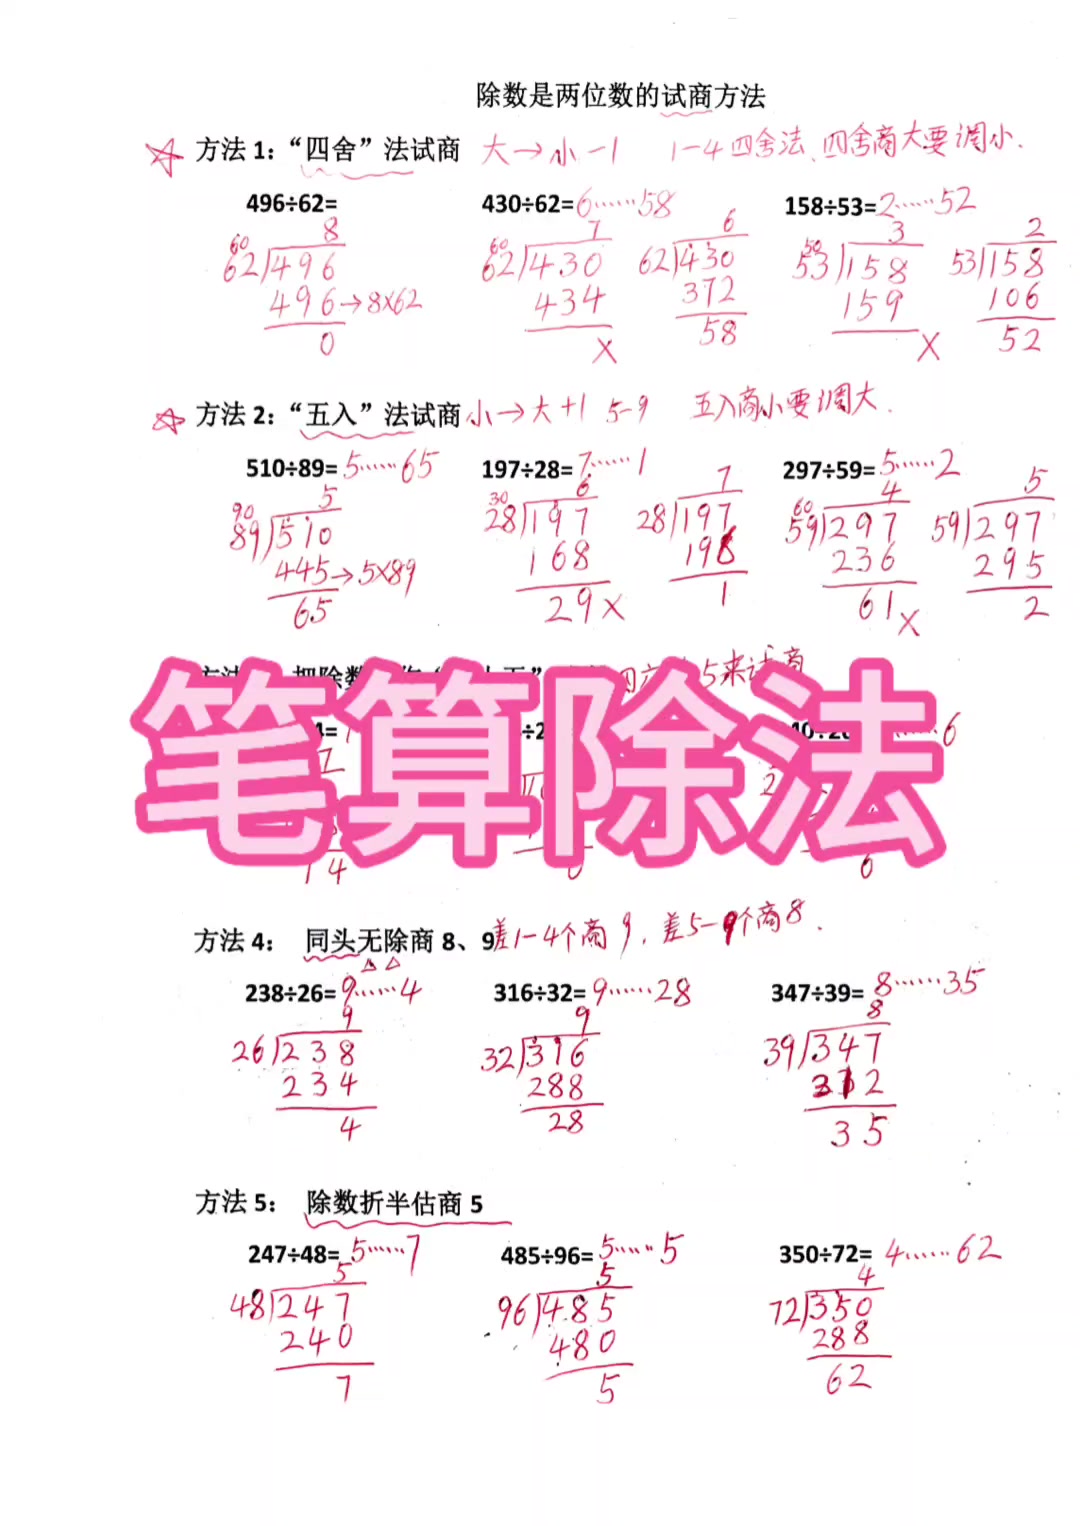 除数是两位数的试商方法
方法 1：“四舍”法试商 大→小-1 1-4四舍法、四舍商大要调小.
496÷62= 430÷62=6……58 158÷53=2……52
8 7 6 3 2
60 60 50
62 496 62 430 62 430 53 158 53 158
496→8×62 434 372 159 106
0 × 58 × 52
方法 2：“五入”法试商 小→大+1 5-9 五入商小要调大.
510÷89=5……65 197÷28=7……1 297÷59=5……2
5 6 7 4 5
90 30 60
89 510 28 197 28 197 59 297 59 297
445→5×89 168 196 236 295
65 29× 1 61× 2
笔算除法
14 0 6
方法 4： 同头无除商 8、9 差1-4个商9，差5-9个商8.
238÷26=9……4 316÷32=9……28 347÷39=8……35
9 9 8
26 238 32 316 39 347
234 288 312
4 28 35
方法 5： 除数折半估商 5
247÷48=5……7 485÷96=5……5 350÷72=4……62
5 5 4
48 247 96 485 72 350
240 480 288
7 5 62